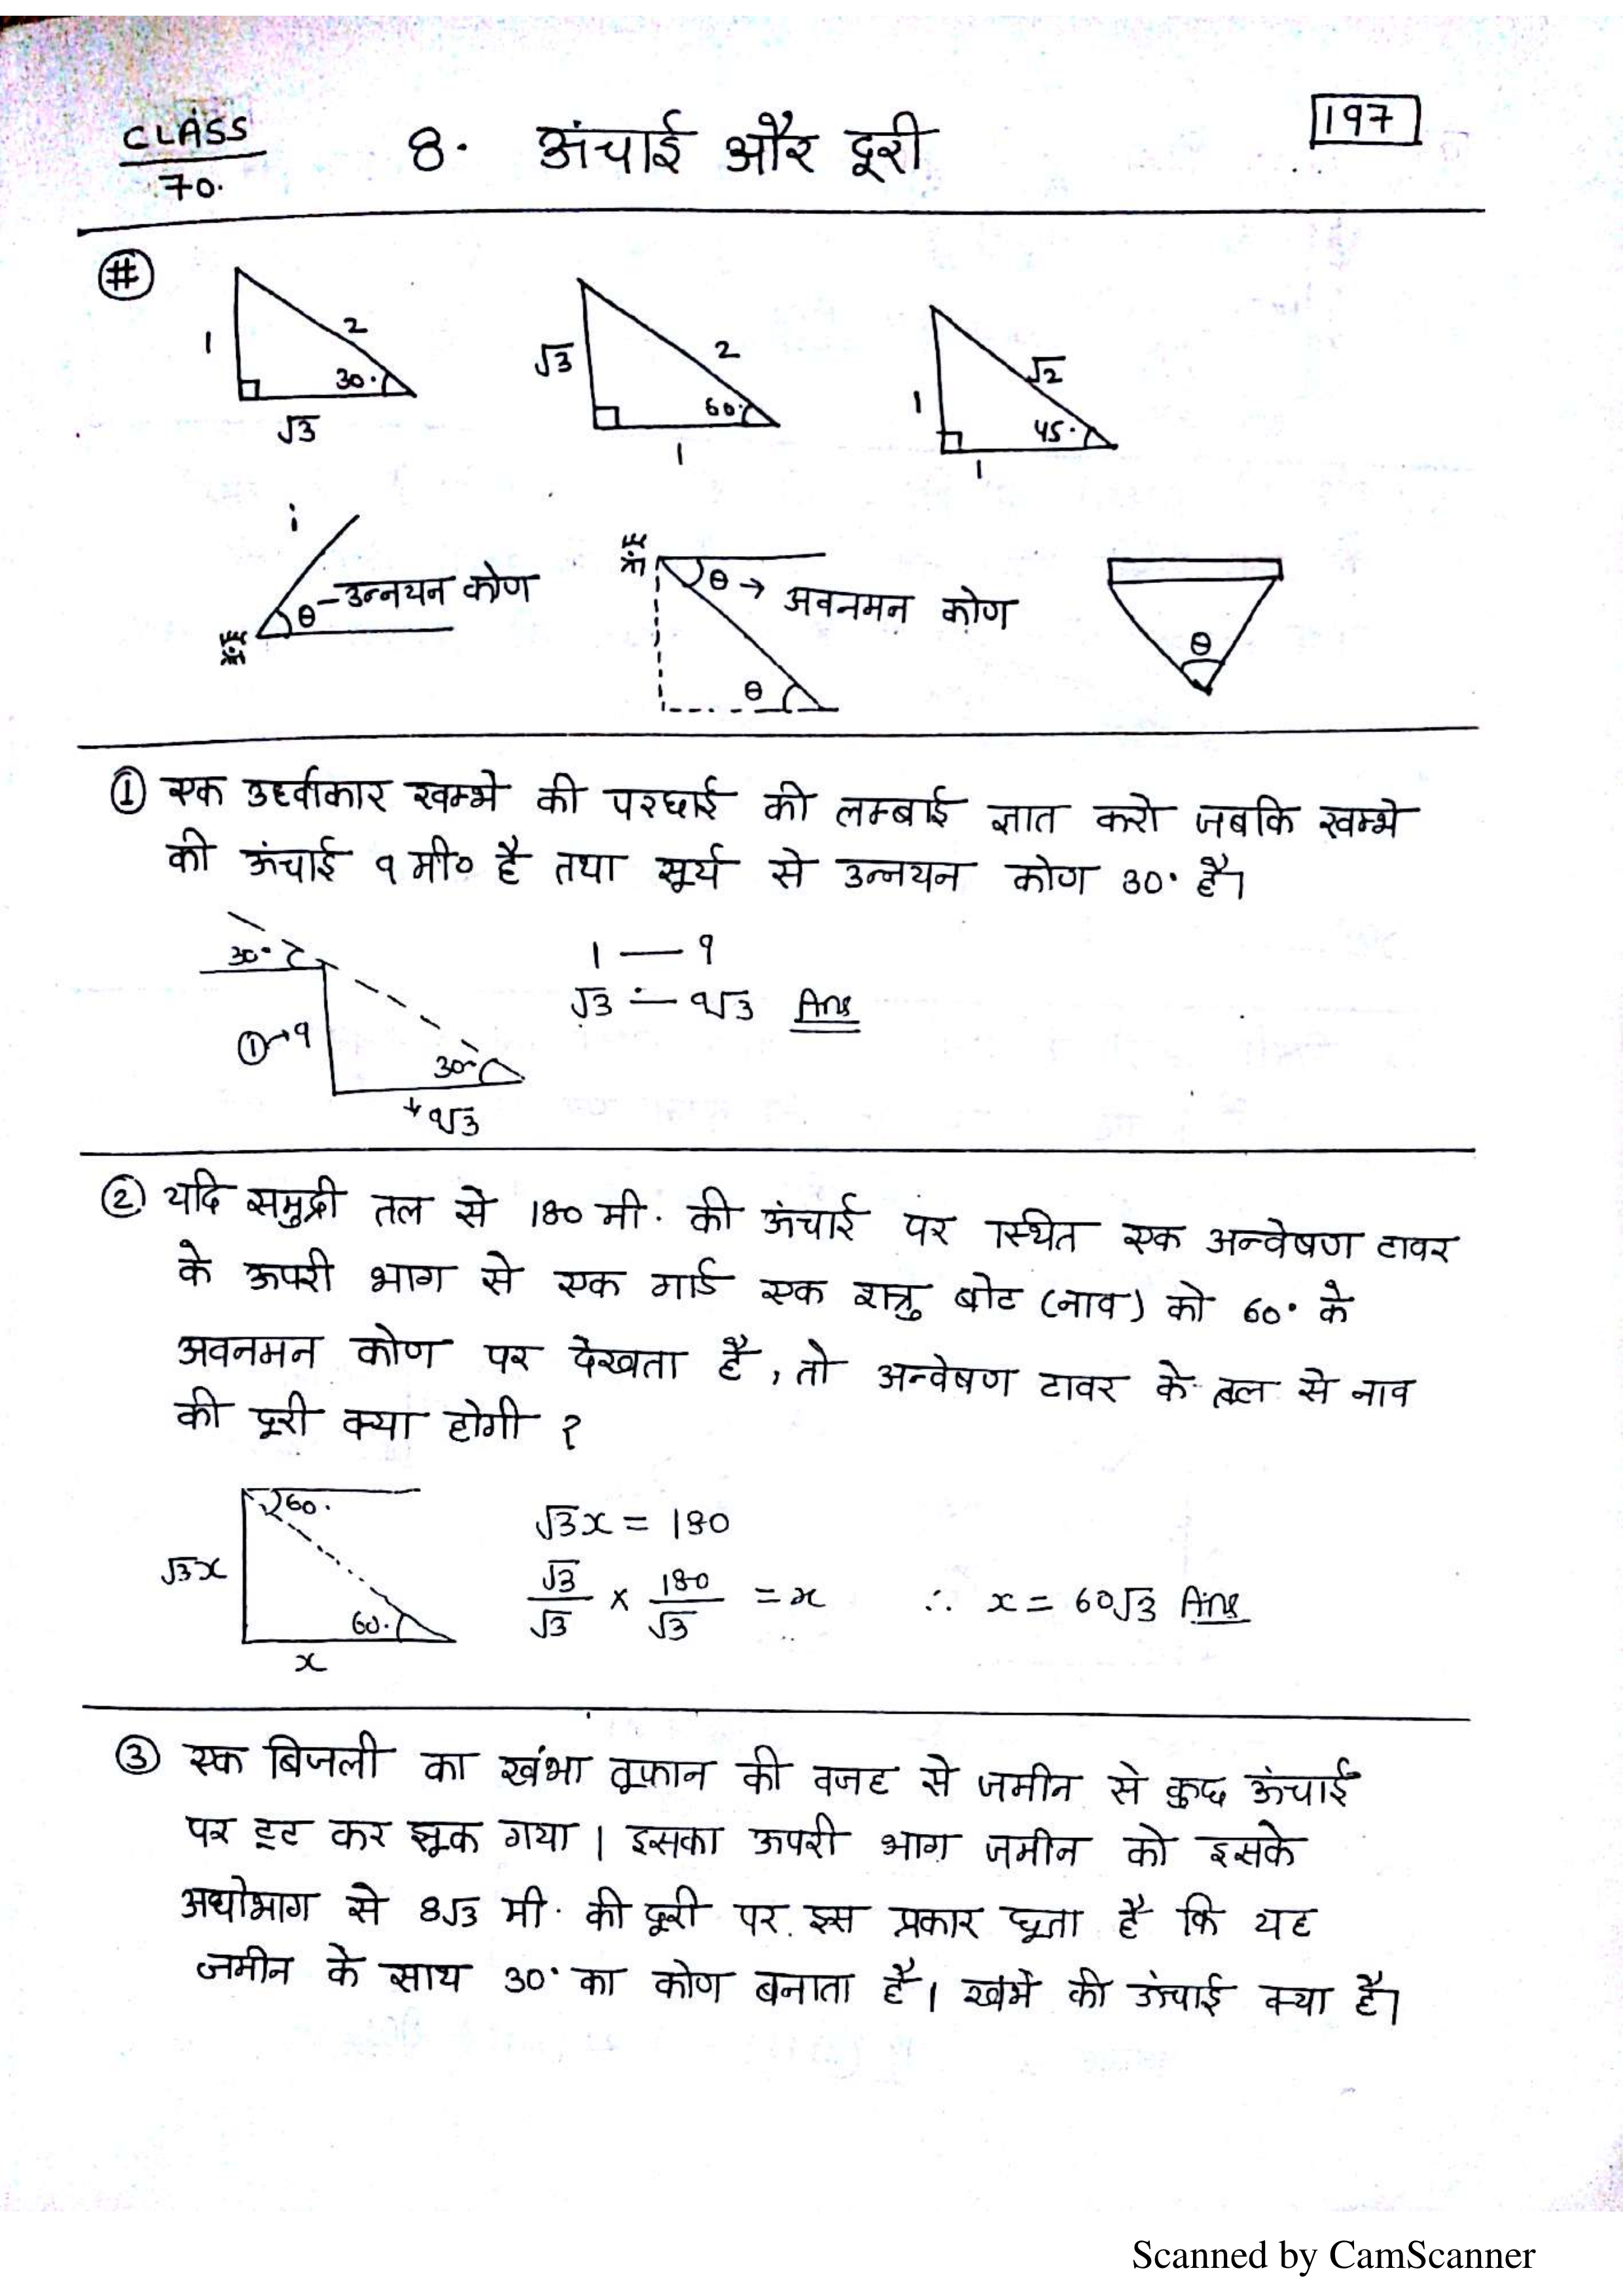 CLASS
70.
8. ऊंचाई और दूरी
197
#
1
2
30°
√3
√3
2
60°
1
1
√2
45°
1
θ - उन्नयन कोण
θ → अवनमन कोण
θ
θ
① एक उर्ध्वाकार खम्भे की परछाई की लम्बाई ज्ञात करो जबकि खम्भे
की ऊंचाई 9 मी० है तथा सूर्य से उन्नयन कोण 30° है।
30°
1 — 9
√3 — 9√3 Ans
① → 9
30°
9√3
② यदि समुद्री तल से 180 मी. की ऊंचाई पर स्थित एक अन्वेषण टावर
के ऊपरी भाग से एक गार्ड एक शत्रु बोट (नाव) को 60° के
अवनमन कोण पर देखता है, तो अन्वेषण टावर के तल से नाव
की दूरी क्या होगी ?
60°
√3x = 180
√3x
√3/√3 × 180/√3 = x ∴ x = 60√3 Ans
60°
x
③ एक बिजली का खंभा तूफान की वजह से जमीन से कुछ ऊंचाई
पर टूट कर झूक गया। इसका ऊपरी भाग जमीन को इसके
अधोभाग से 8√3 मी. की दूरी पर इस प्रकार छूता है कि यह
जमीन के साथ 30° का कोण बनाता है। खंभे की ऊंचाई क्या है।
Scanned by CamScanner